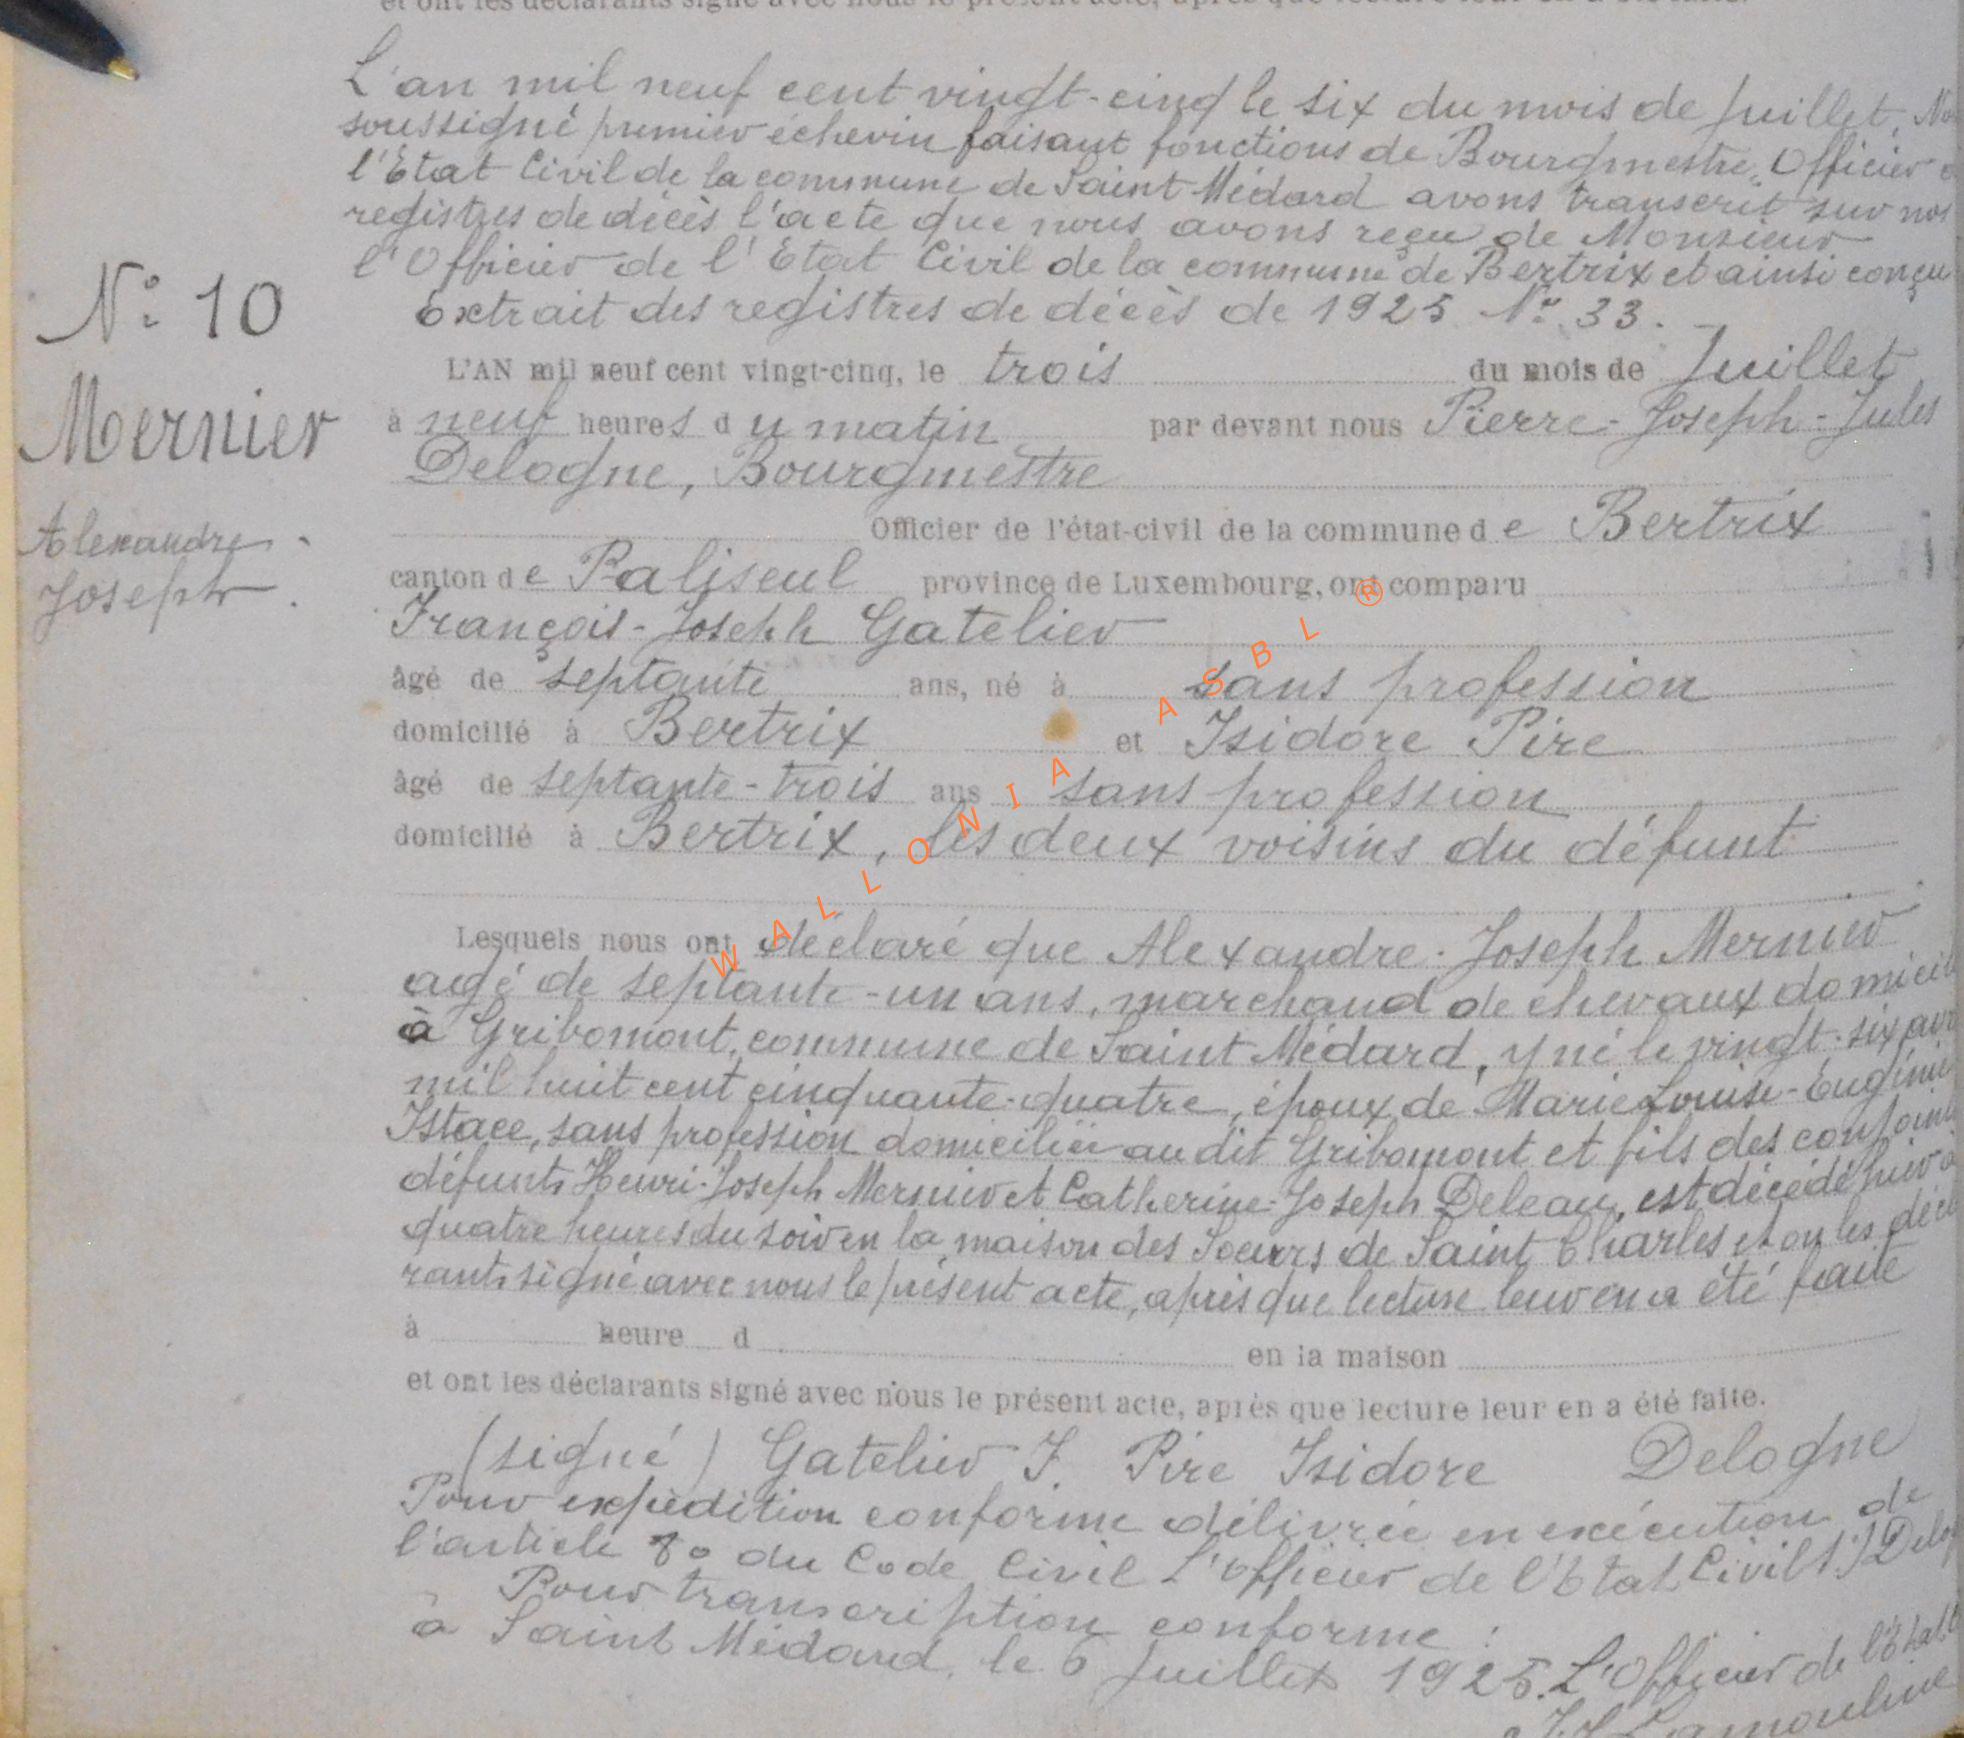 et ont les déclarants signé avec nous le présent acte, après que lecture leur en a été faite.
L'an mil neuf cent vingt-cinq le six du mois de Juillet, Nous
soussigné premier échevin faisant fonctions de Bourgmestre, Officier de
l'Etat Civil de la commune de Saint-Médard avons transcrit sur nos
registres de décès l'acte que nous avons reçu de Monsieur
l'Officier de l'Etat Civil de la commune de Bertrix et ainsi conçu
Extrait des registres de décès de 1925 N° 33.
N° 10
Mernier
Alexandre
Joseph
L'AN mil neuf cent vingt-cinq, le trois du mois de Juillet
à neuf heures du matin par devant nous Pierre-Joseph-Jules
Delogne, Bourgmestre
Officier de l'état-civil de la commune de Bertrix
canton de Paliseul province de Luxembourg, ont comparu
François-Joseph Gatelier
âgé de septante ans, né à sans profession
domicilié à Bertrix et Isidore Pire
âgé de septante-trois ans sans profession
domicilié à Bertrix, les deux voisins du défunt
Lesquels nous ont déclaré que Alexandre-Joseph Mernier
agé de septante-un ans, marchand de chevaux domicil
à Gribomont, commune de Saint-Médard, y né le vingt-six avr
mil huit cent cinquante-quatre, époux de Marie Louise-Eugénie
Istace, sans profession domiciliée au dit Gribomont et fils des conjoints
défunts Henri-Joseph Mernier et Catherine-Joseph Deleau, est décédé hier à
quatre heures du soir en la maison des Soeurs de Saint Charles et on les décla
rants signé avec nous le présent acte, après que lecture leur en a été faite
à heure d en la maison
et ont les déclarants signé avec nous le présent acte, après que lecture leur en a été faite.
(signé) Gatelier J. Pire Isidore Delogne
Pour expédition conforme délivrée en exécution de
l'article 80 du Code Civil L'Officier de l'Etat Civil (s) Delog
Pour transcription conforme :
à Saint Médard, le 6 Juillet 1925. L'Officier de l'Etat
Lamouline
WALLONIA ASBL ®